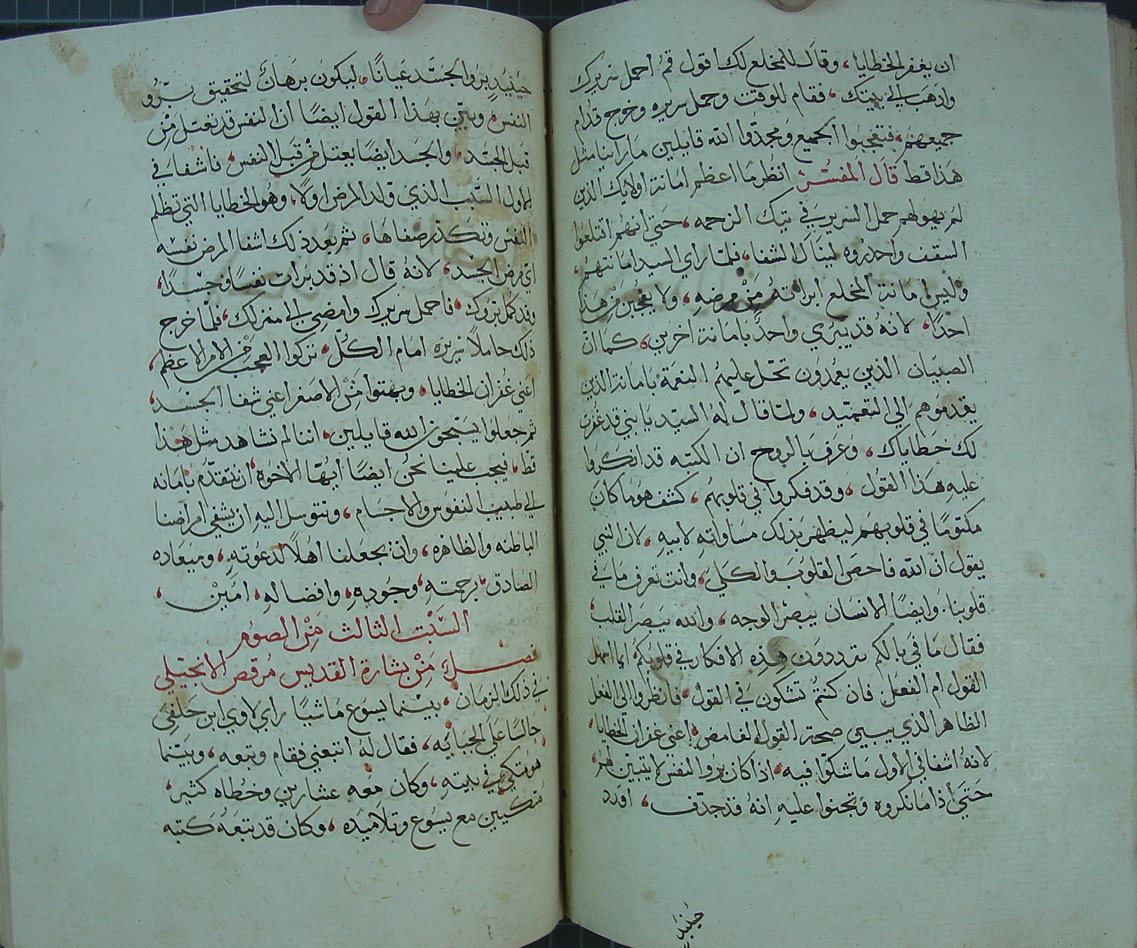 ان يغفر الخطايا، وقال للمخلع لك اقول قم احمل سريرك
واذهب الى بيتك، فقام للوقت وحمل سريره وخرج قدام
جميعهم، فتعجبوا الجميع ومجدوا الله قايلين ما راينا مثل
هذا قط قال المفسر انظر ما اعظم امانة اولايك الذين
لم يهولهم حمل السرير في تيك الزحمه، حتى انهم اقتلعوا
السقف واحدروه لينال الشفا، فلما راى السيد امانتهم،
وليس امانة المخلع ابراته من مرضه، ولا يعجبن من هذا
احدا، لانه قد يبرى واحدا بامانة اخرين، كما ان
الصبيان الذين يعمدون تحل عليهم النعمة بامانة الذين
يقدموهم الى التعميد، ولما قال له السيد يا بني قد غفرت
لك خطاياك، وعرف بالروح ان الكتبه قد انكروا
عليه هذا القول، وقد فكروا في قلوبهم، كشف هو ما كان
مكتوما في قلوبهم ليظهر بذلك مساواته لابيه، لان النبي
يقول ان الله فاحص القلوب والكلى، وانت تعرف ما في
قلوبنا، وايضا الانسان يبصر الوجه، والله يبصر القلب،
فقال ما في بالكم تترددون هذه الافكار في قلوبكم ايما اسهل
القول ام الفعل فان كنتم تشكون في القول، فانظروا الى الفعل
الظاهر الذي يبين صحة القول الغامض، اعني غفران الخطايا،
لانه اشفا في الاول ما شكوا فيه، اذ كان برو النفس لا يتبين لهم،
حتى اذا ما نكروه وتجنوا عليه انه قد جدف، اورد
حينيذ
حينيذ برو الجسد عيانا، ليكون برهان لتحقيق برو
النفس، وبين بهذا القول ايضا ان النفس قد تعتل من
قبل الجسد، والجسد ايضا يعتل من قبل النفس، فاشفا في
الاول السبب الذي ولد المرض اولا، وهو الخطايا التي تظلم
النفس وتكدر صفاها، ثم بعد ذلك اشفا المرض نفسه
اي مرض الجسد، لانه قال اذ قد برات نفسا وجسدا،
وقد كمل بروك، فاحمل سريرك وامضي الى منزلك، فلما خرج
ذلك حاملا سريره امام الكل، تركوا العجب من الامر الاعظم،
اعني غفران الخطايا، وبهتوا من الاصغر اعني شفا الجسد،
ثم جعلوا يسبحون الله قايلين، اننا لم نشاهد مثل هذا
قط، فيجب علينا نحن ايضا ايها الاخوة ان نتقدم بامانه
الى طبيب النفوس والاجسام، ونتوسل اليه ان يشفي امراضنا
الباطنه والظاهره، وان يجعلنا اهلا لدعوته، وميعاده
الصادق، برحمته، وجوده، وافضاله، امين،
السبت الثالث من الصوم
فصل من بشارة القديس مرقص الانجيلي
في ذلك الزمان، بينما يسوع ماشيا راى لاوي ابن حلفى
جالسا على الجبايه، فقال له اتبعني فقام وتبعه، وبينما
هو متكي في بيته، وكان معه عشارين وخطاه كثير،
متكيين مع يسوع وتلاميذه، وكان قد تبعه كتبه